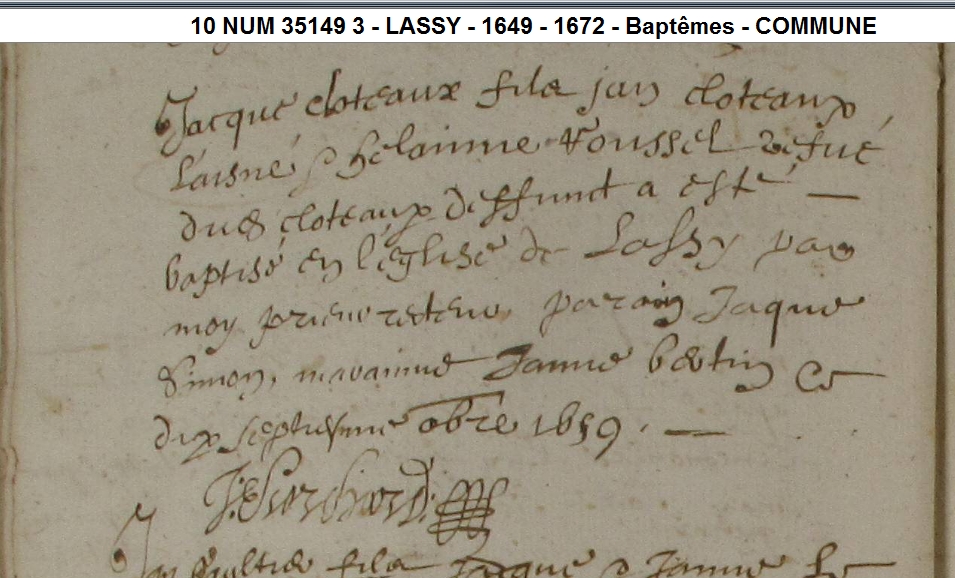 10 NUM 35149 3 - LASSY - 1649 - 1672 - Baptêmes - COMMUNE
Jacque cloteaux fils jan cloteaux
l'aisné & helainne Roussel vefue
dud cloteaux deffunct a esté
baptisé en l'église de Lassy par
moy prieur recteur, parain Jaque
Simon, marainne Janne bertin ce
dix septiesme obre 1659.
fils Jaque & Janne